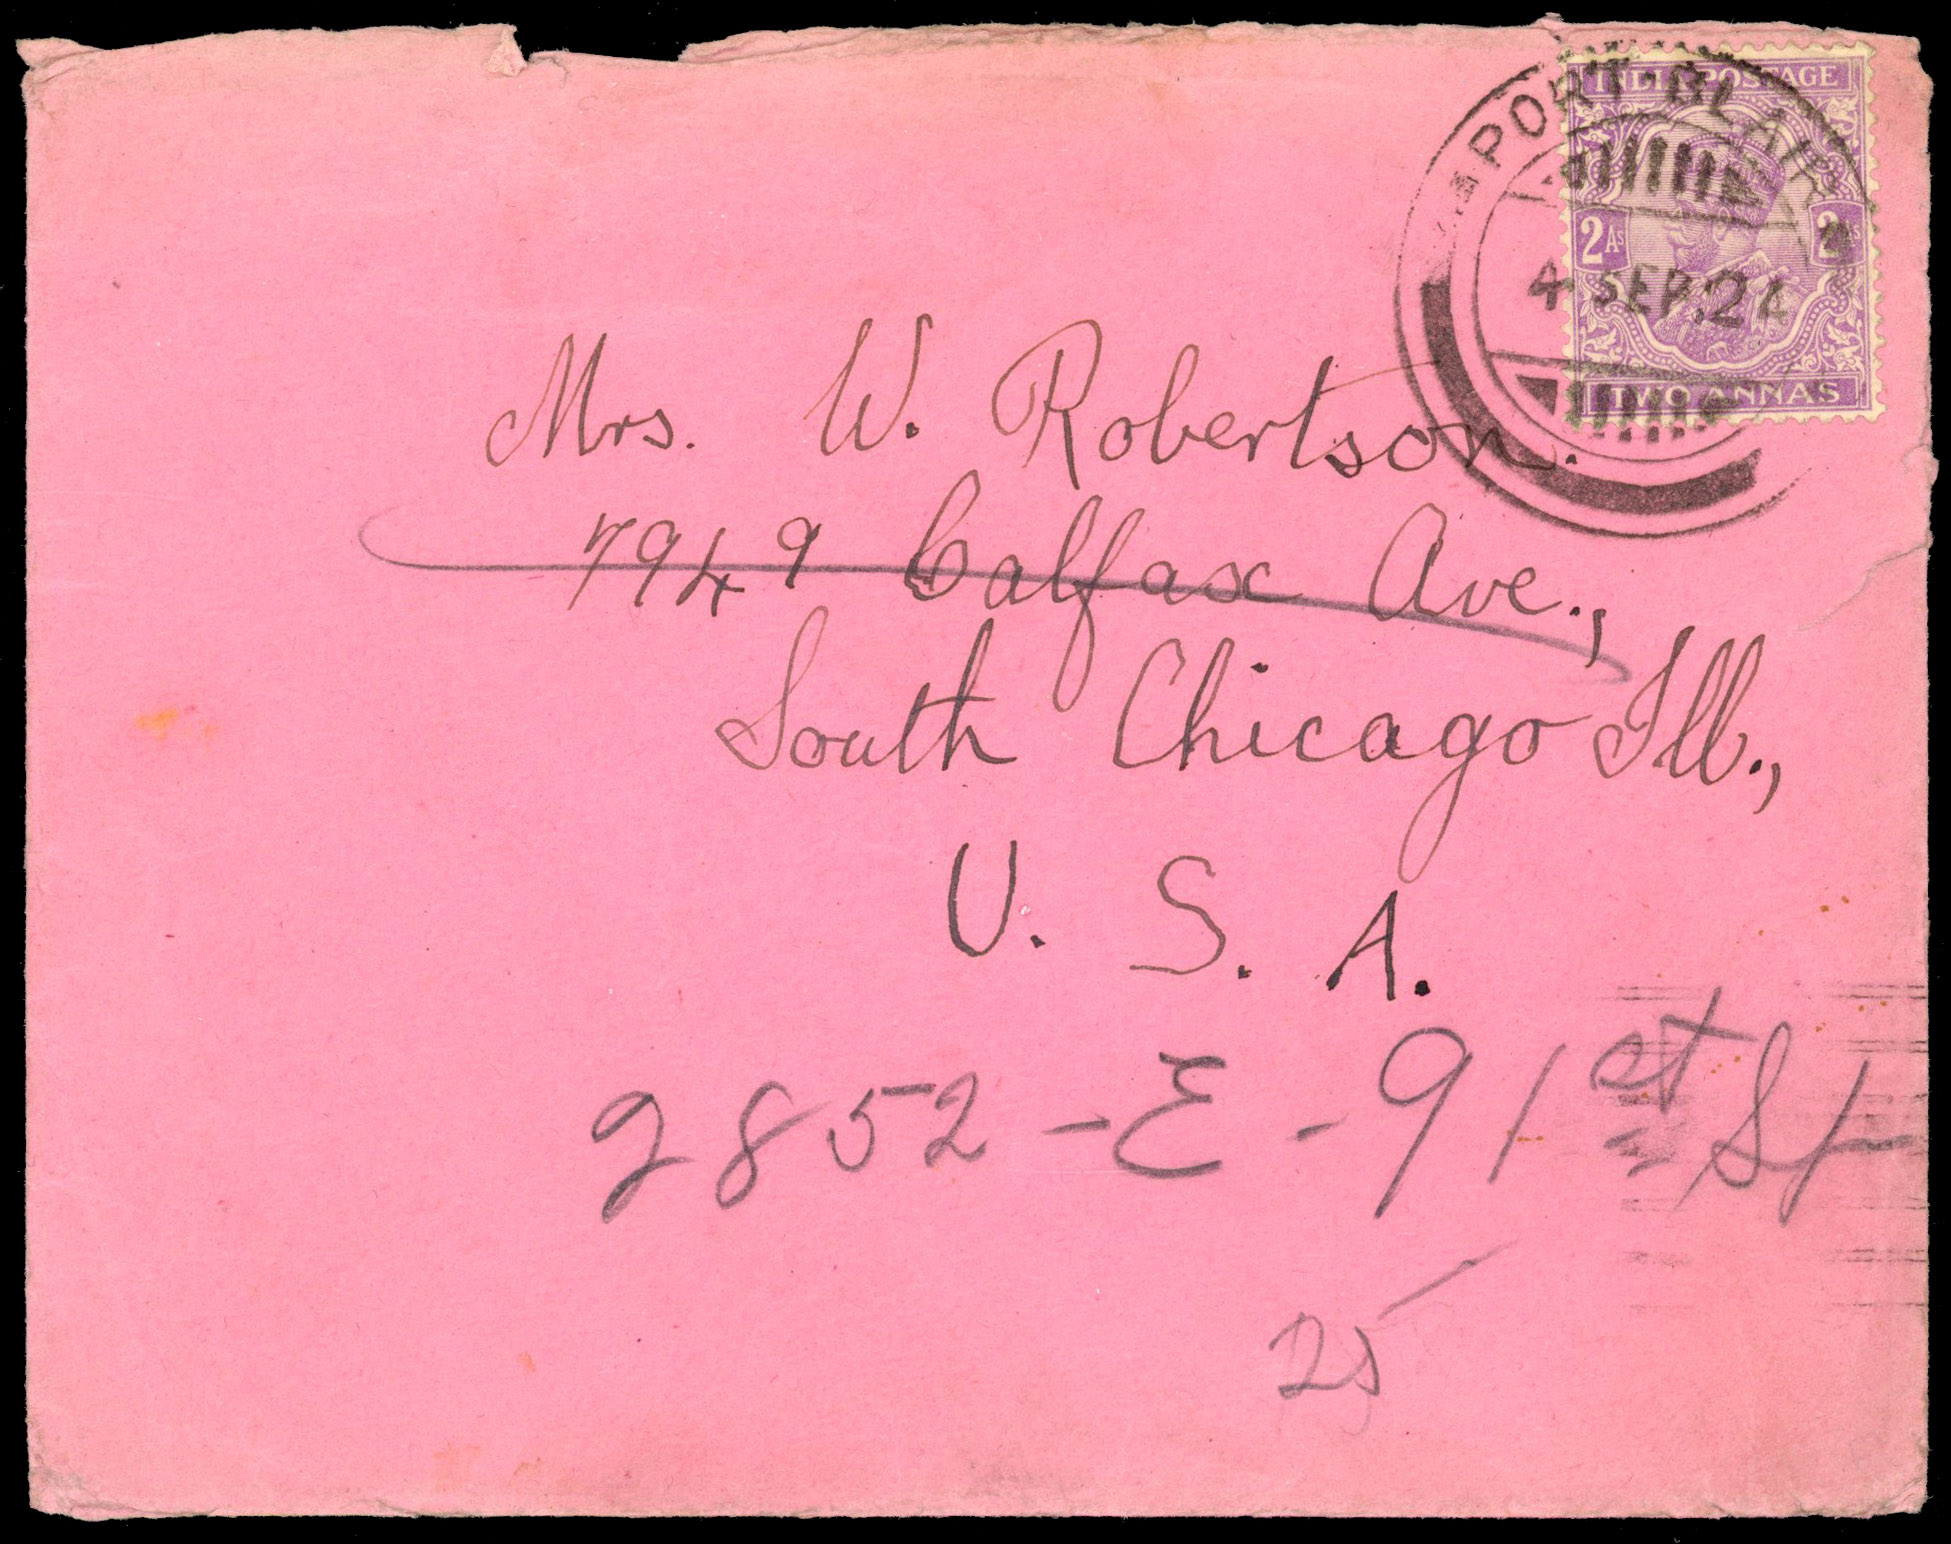 INDIA POSTAGE
PORT-BLAIR
2 As 2 As
4 SEP. 24
TWO ANNAS
Mrs. W. Robertson.
7949 Calfax Ave.,
South Chicago Ill.,
U. S. A.
2852-E-91st St
25